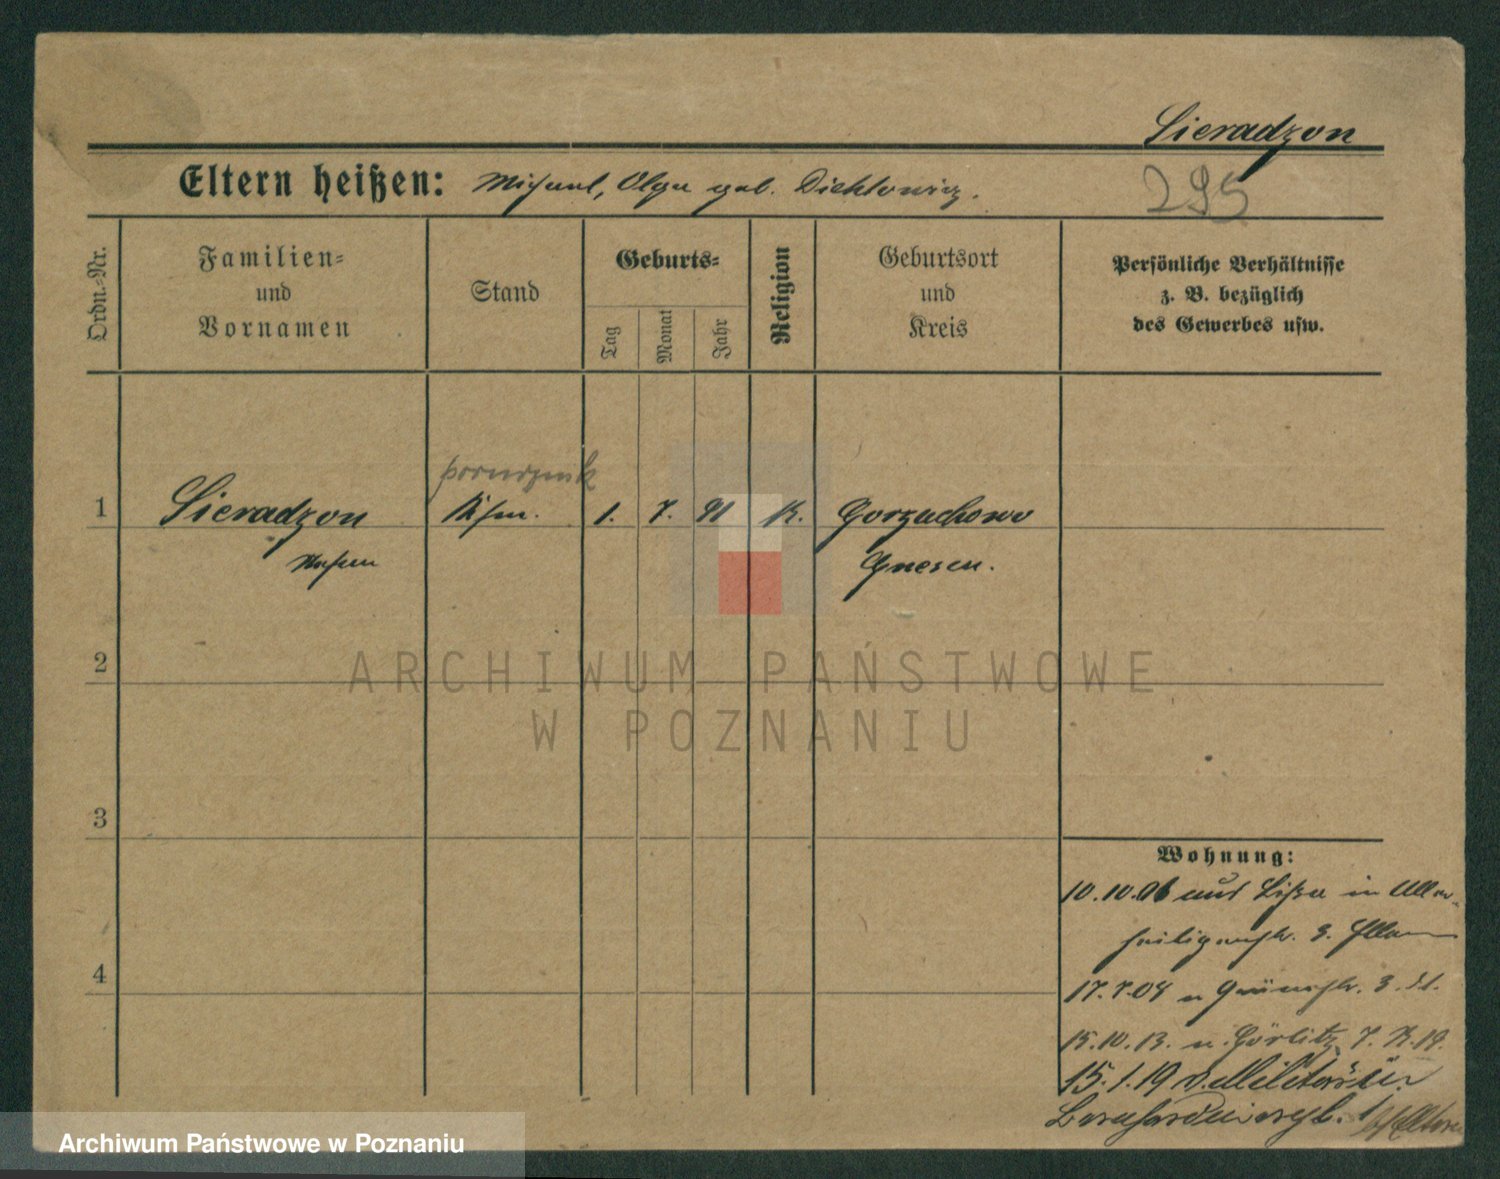 Sieradzon
Eltern heißen: Michael, Olga geb. Dichtowicz.
295
Ordn.-Nr.
Familien-
und
Vornamen
Stand
Geburts-
Tag
Monat
Jahr
Religion
Geburtsort
und
Kreis
Persönliche Verhältnisse
z. B. bezüglich
des Gewerbes usw.
1
Sieradzon
1. 7. 91 K. Gorzuchowo
Gnesen.
2
3
4
ARCHIWUM PAŃSTWOWE
W POZNANIU
Wohnung:
10.10.06 aus Lissa in Aller-
heiligenstr. 3.
17.7.08 n Grünestr. 3.
15.10.13. n. Görlitz
15.1.19 v. Militär
Archiwum Państwowe w Poznaniu